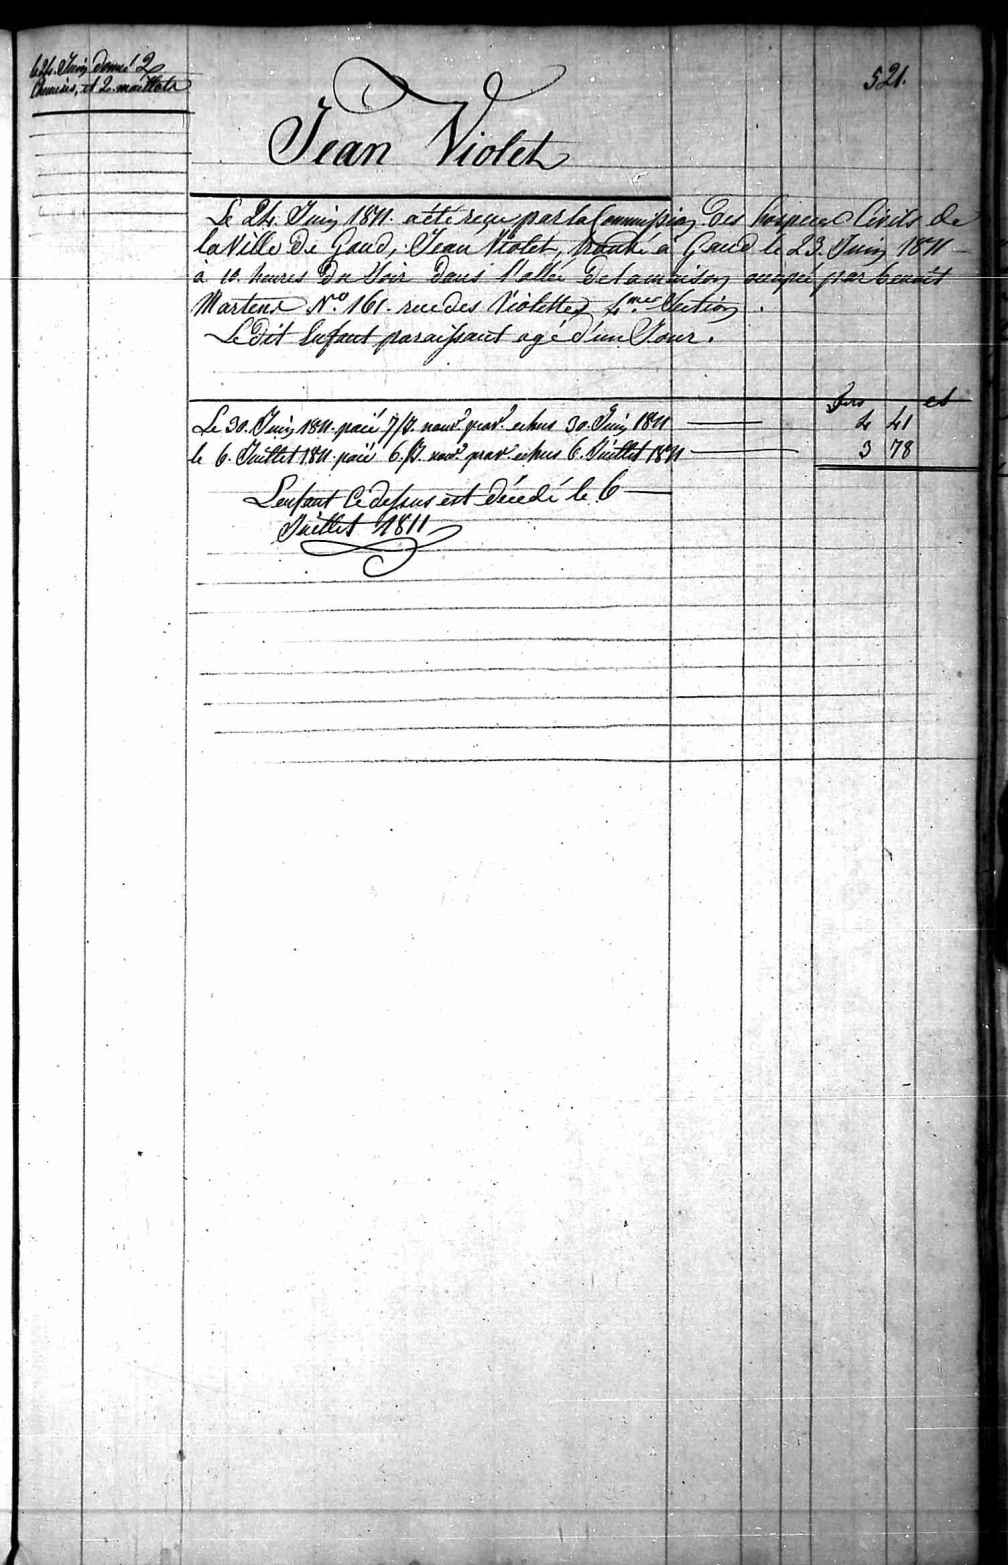 le 24. Juin donné 2
Chemises, et 2. maillots
521.
Jean Violet
Le 24. Juin 1811. a été reçu par la Commission des hospices Civils de
la Ville de Gand, Jean Violet, trouvé à Gand le 23. Juin 1811
à 10. heures du Soir dans l'allée de la maison occupée par benoit
Martens N.º 161. rue des Violettes 4.me Section.
Le dit Enfant paraissant agé d'un Jour.
frs ct
Le 30. Juin 1811. paié 7/J. echus 30. Juin 1811 4 41
le 6. Juillet 1811. paié 6./J. echus 6. Juillet 1811 3 78
L'enfant Ci dessus est décédé le 6
Juillet 1811